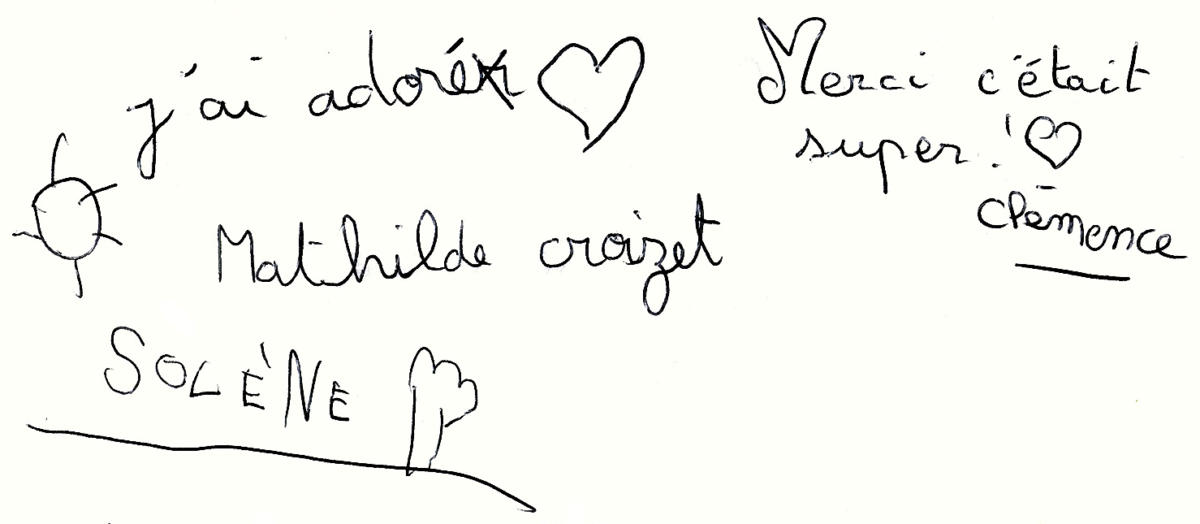 j'ai adoré
Mathilde croizet
SOLÈNE
Merci c'était
super! 
Clémence